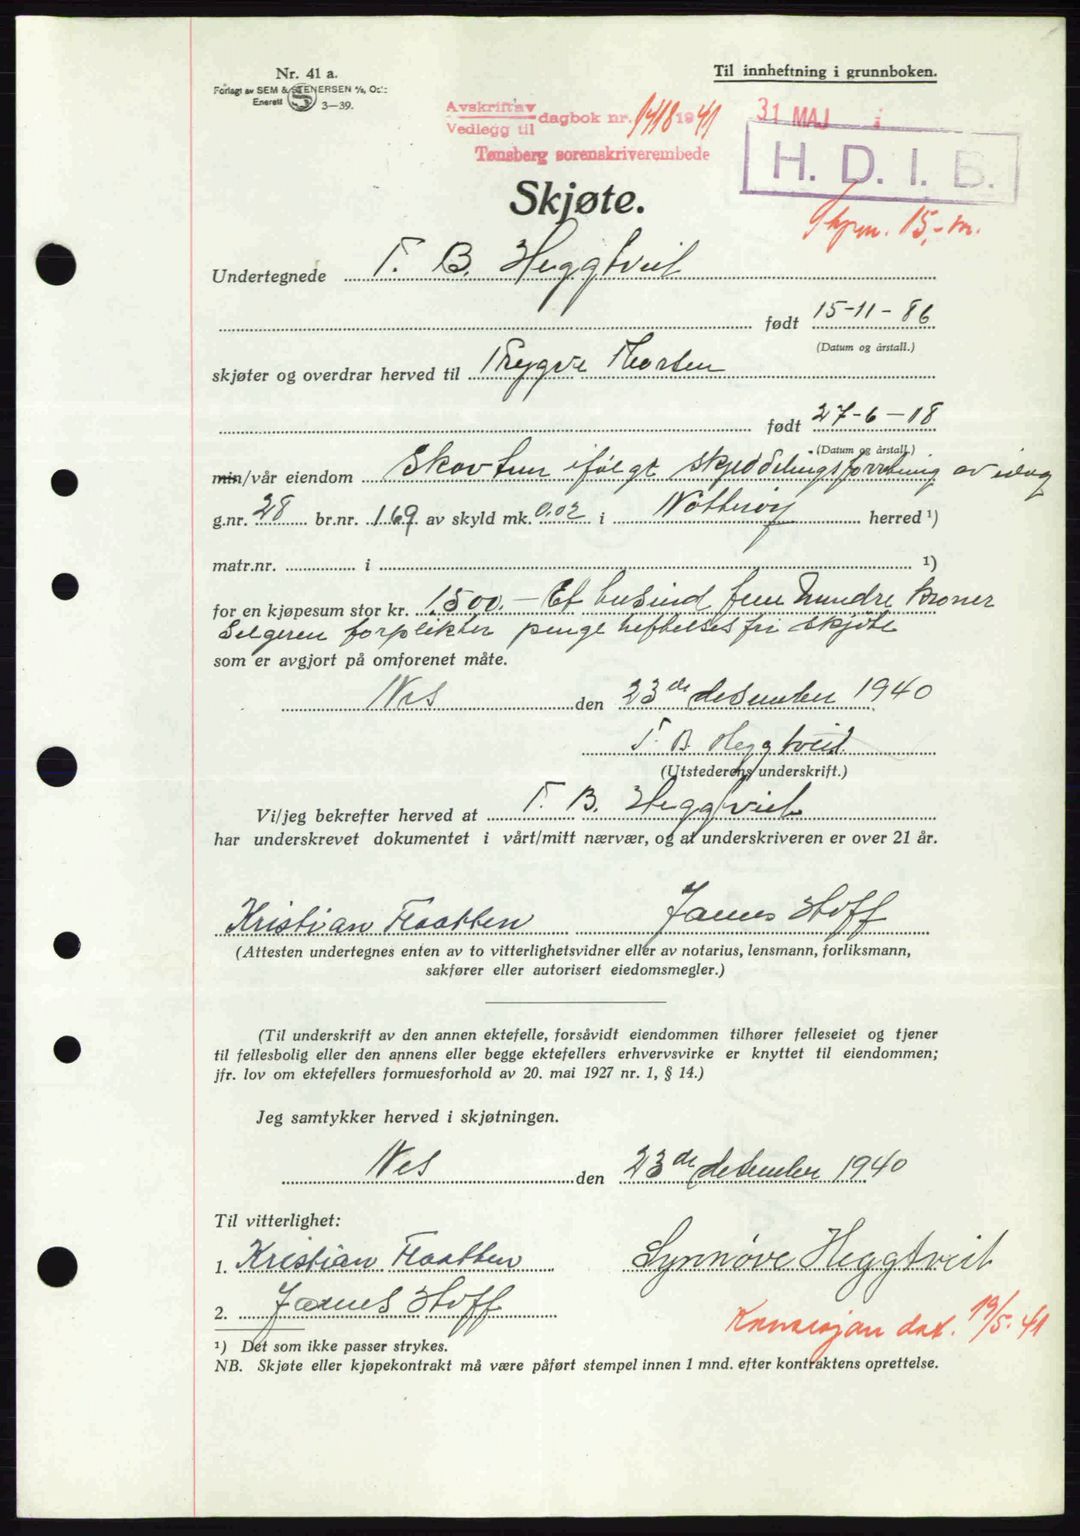 Nr. 41 a.
Forlagt av SEM & STENERSEN A/S, Oslo
Enerett 3—39.
Til innheftning i grunnboken.
Avskrift av
Vedlegg til dagbok nr. 1418 1941
31 MAJ
Tønsberg sorenskriverembede
H. D. I. B.
Skjøte.
15,- m.
Undertegnede T. B. Heggtveit
født 15-11-86
(Datum og årstall.)
skjøter og overdrar herved til Trygve Thorsen
født 27-6-18
(Datum og årstall.)
min/vår eiendom Skovtun ifølge skyldelingsforretning av idag
g.nr. 28 br.nr. 169 av skyld mk. 0.02 i Nøtterøy herred ¹)
matr.nr. i ¹)
for en kjøpesum stor kr. 1500.- Et tusind fem hundre kroner
Selgeren forplikter penge heftelsesfri skjøte
som er avgjort på omforenet måte.
Nes den 23de desember 1940
T. B. Heggtveit
(Utstederens underskrift.)
Vi/jeg bekrefter herved at T. B. Heggtveit
har underskrevet dokumentet i vårt/mitt nærvær, og at underskriveren er over 21 år.
Kristian Flaatten James Hoff
(Attesten undertegnes enten av to vitterlighetsvidner eller av notarius, lensmann, forliksmann,
sakfører eller autorisert eiedomsmegler.)
(Til underskrift av den annen ektefelle, forsåvidt eiendommen tilhører felleseiet og tjener
til fellesbolig eller den annens eller begge ektefellers erhvervsvirke er knyttet til eiendommen;
jfr. lov om ektefellers formuesforhold av 20. mai 1927 nr. 1, § 14.)
Jeg samtykker herved i skjøtningen.
Nes den 23de desember 1940
Til vitterlighet:
1. Kristian Flaatten Synnøve Heggtveit
2. James Hoff
Konsesjon dat. 19/5. 41
¹) Det som ikke passer strykes.
NB. Skjøte eller kjøpekontrakt må være påført stempel innen 1 mnd. efter kontraktens oprettelse.